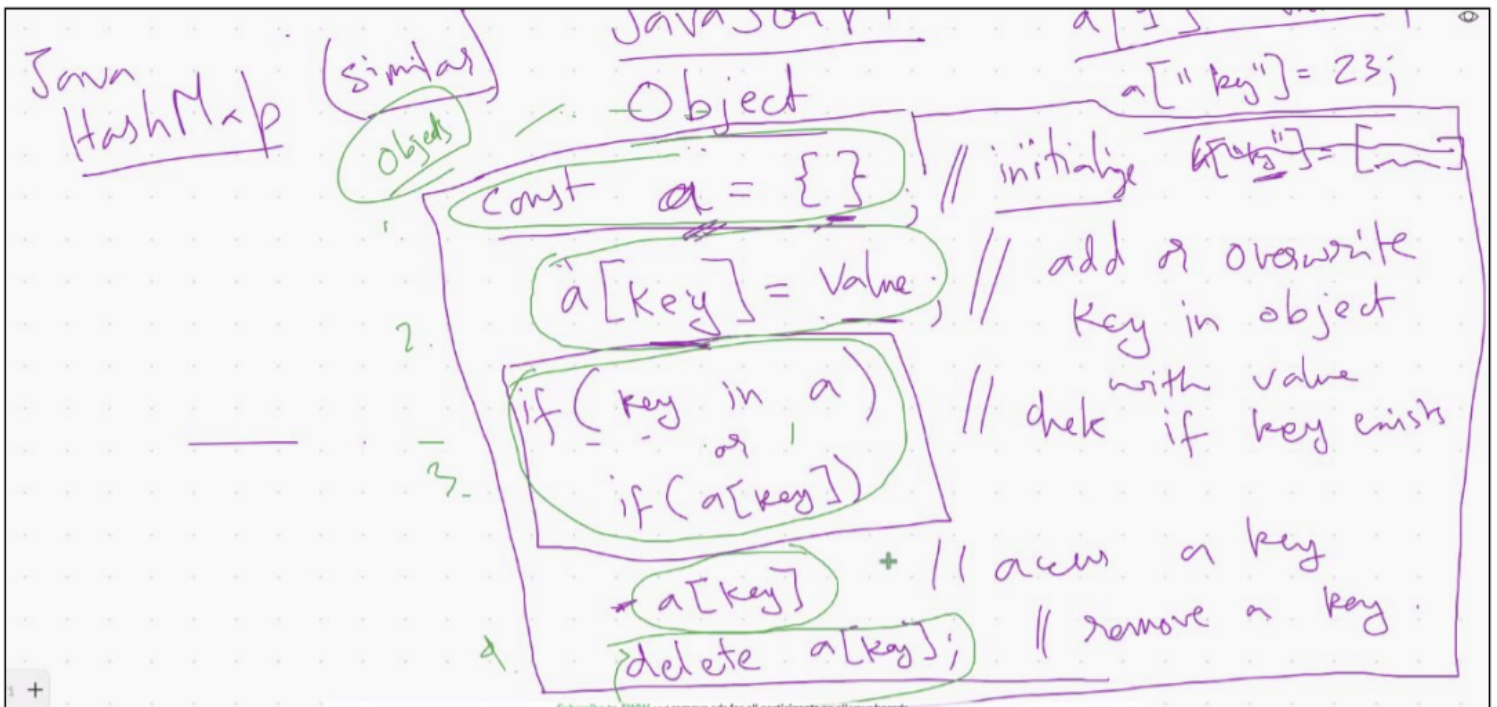 JavaScript
a[1]
Java
HashMap
(similar)
Object
a["key"] = 23;
Objects
const a = {};
// initialize
1.
a[key] = value;
// add or overwrite
key in object
with value
2.
if (key in a)
or
if (a[key])
// chek if key exists
3.
a[key]
// access a key
4.
delete a[key];
// remove a key.
1 +